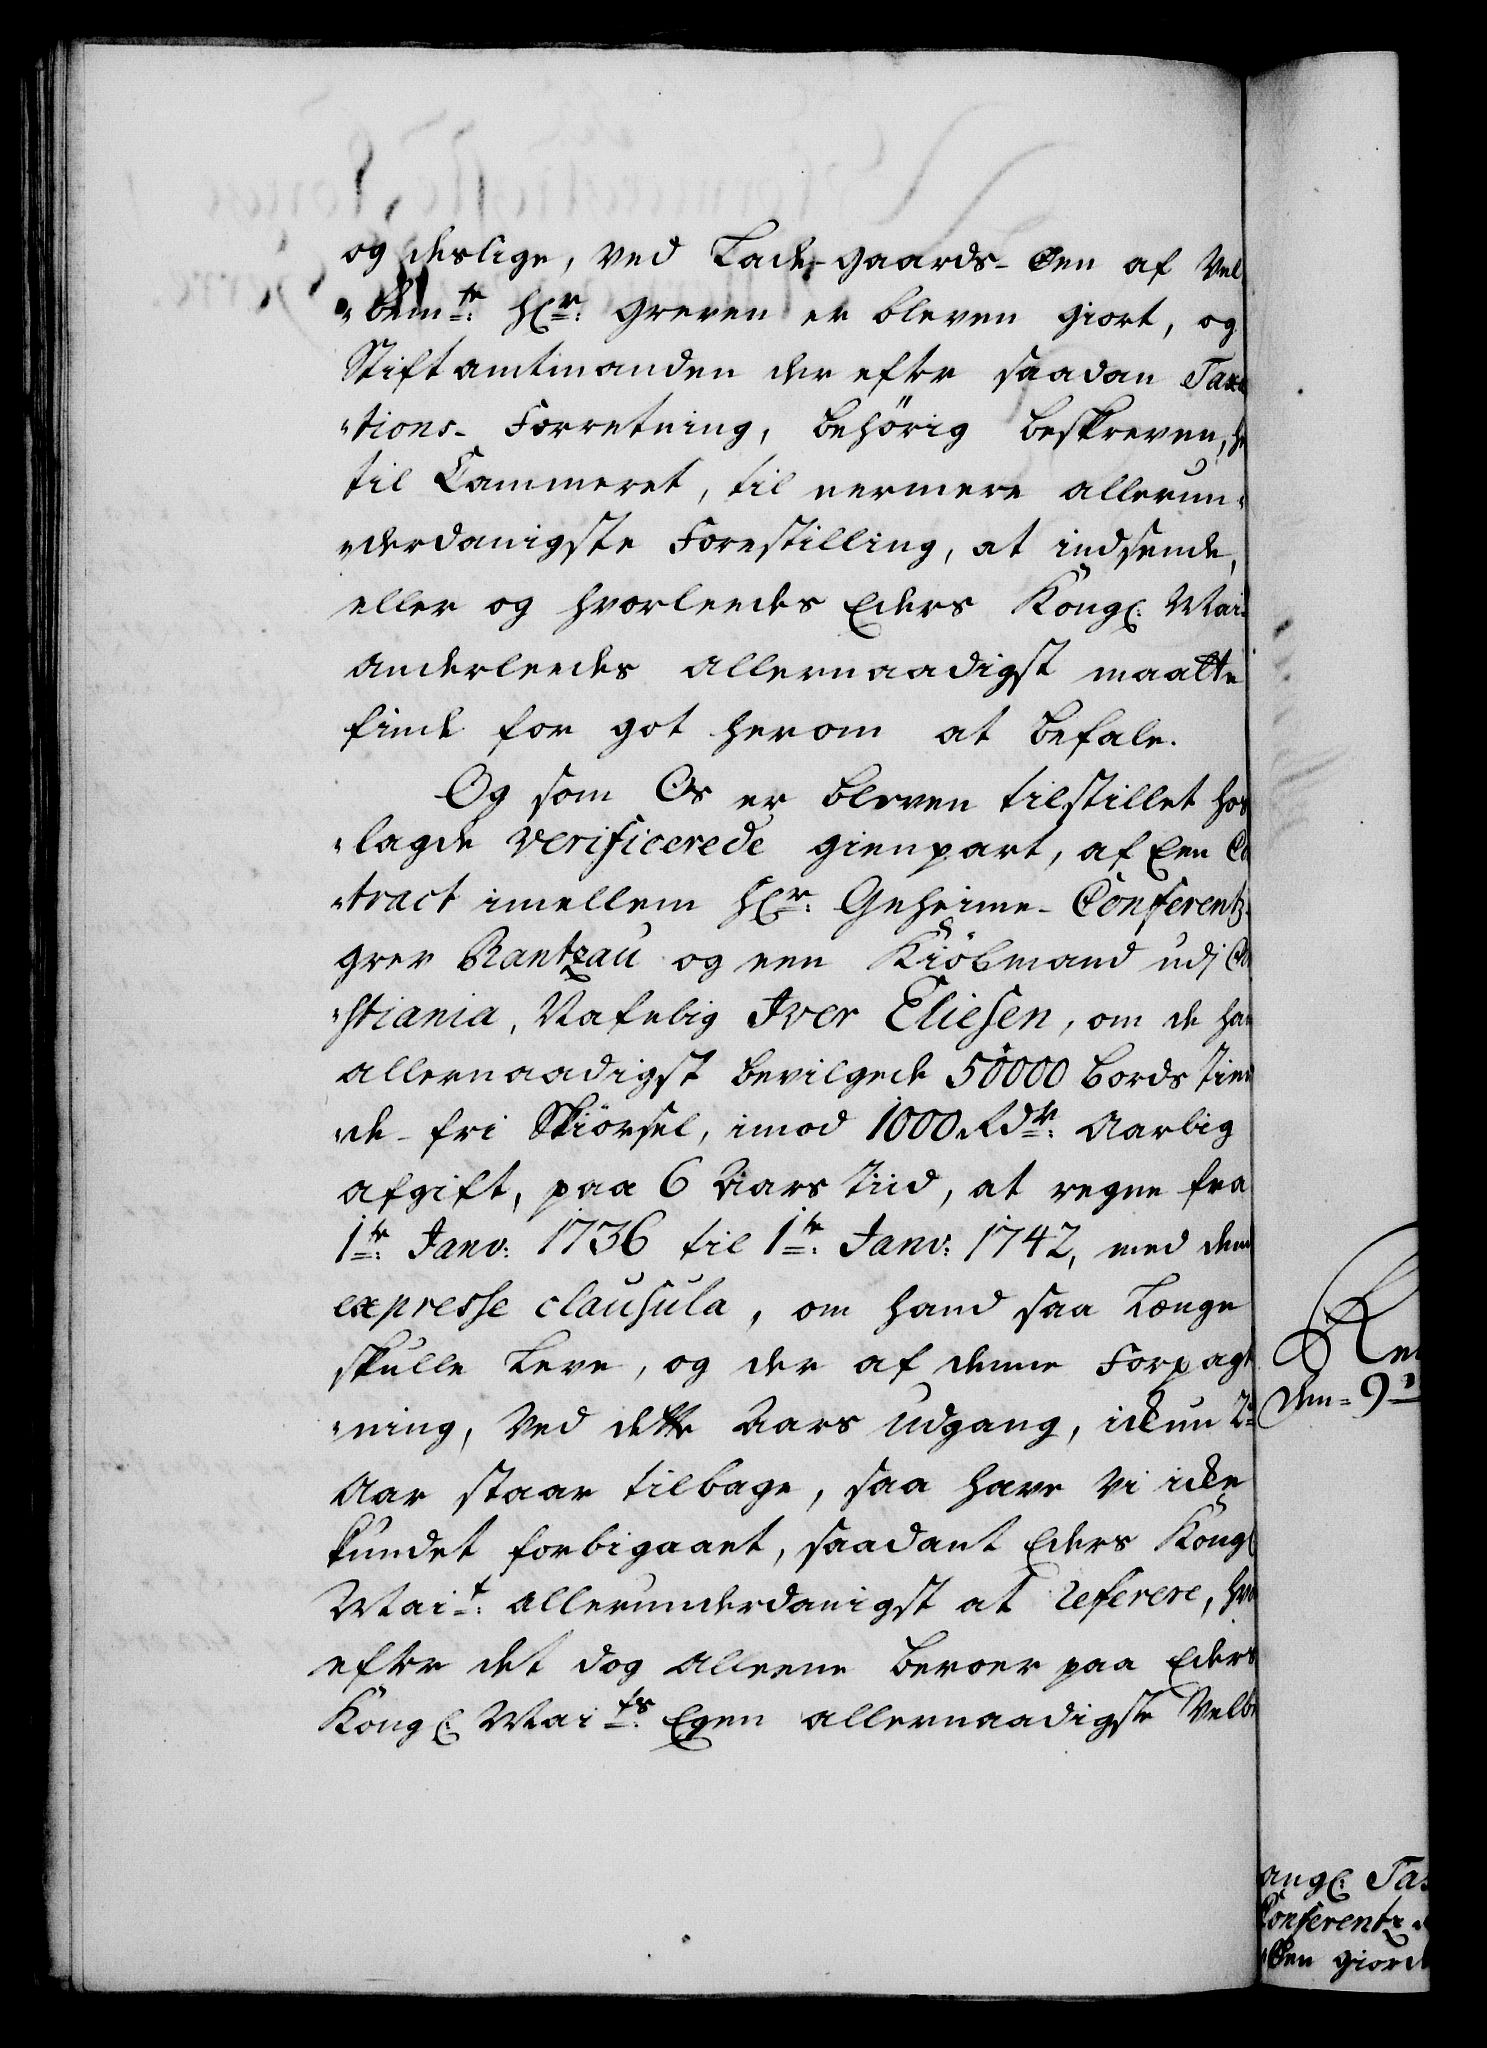 og deslige, ved Lade-gaards-Øen af Vel
„bemte: Hr: Greven er bleven giort, og
Stiftamtmanden der efter saadan Taxa
„tions-Forretning, behörig beskreven,
til Cammeret, til nermere allerun„
„derdanigste Forestilling, at indsende,
eller og hvorleedes Eders Kongl: Mai:
anderleedes allernaadigst maatte
finde for got herom at befale.
Og som Os er bleven tilstillet hos
„lagde verificerede gienpart, af Een Co
„tract imellem Hr: Geheime-Conferentz-
grev Rantzau og een Kiöbmand udj Chri
„stiania, Nafnlig Iver Eliesen, om de ham
allernaadigst bevilgede 50000 Bords Tien
„de-fri Skiörsel, imod 1000 Rdr: Aarlig
afgift, paa 6 Aars Tiid, at regne fra
1te: Janv: 1736 til 1te: Janv: 1742, med den
expresse clausula, om hand saa længe
skulle leve, og der af denne Forpagt
„ning, ved dette Aars udgang, ickun 2de
Aar staar tilbage, saa have Vi icke
kundet forbigaaet, saadant Eders Kongl
Mait: allerunderdanigst at referere, hvor
efter det dog alleene beroer paa Eders
Kongl: Maits: Egen allernaadigste Velbe
den 9
angl: Tax
Conferentz
Øen giord